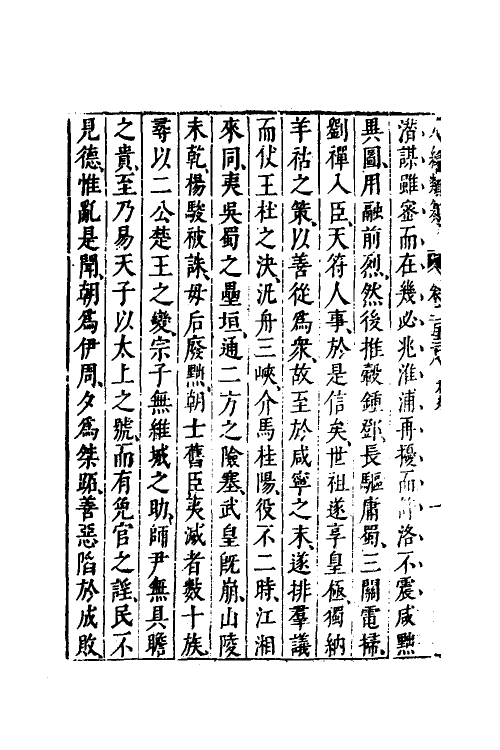 潜謀雖密而在幾必兆淮浦再擾而許洛不震咸黜
異圖用融前烈然後推轂鍾鄧長驅庸蜀三關電掃
劉禪入臣天符人事於是信矣世祖遂享皇極獨納
羊祜之策以善從爲衆故至於咸寧之末遂排羣議
而仗王杜之決汎舟三峽介馬桂陽役不二時江湘
來同夷吳蜀之壘垣通二方之險塞武皇旣崩山陵
未乾楊駿被誅毋后廢黜朝士舊臣夷滅者數十族
尋以二公楚王之變宗子無維城之助師尹無具瞻
之貴至乃易天子以太上之號而有免官之謡民不
見德惟亂是聞朝爲伊周夕爲桀跖善惡陷於成敗